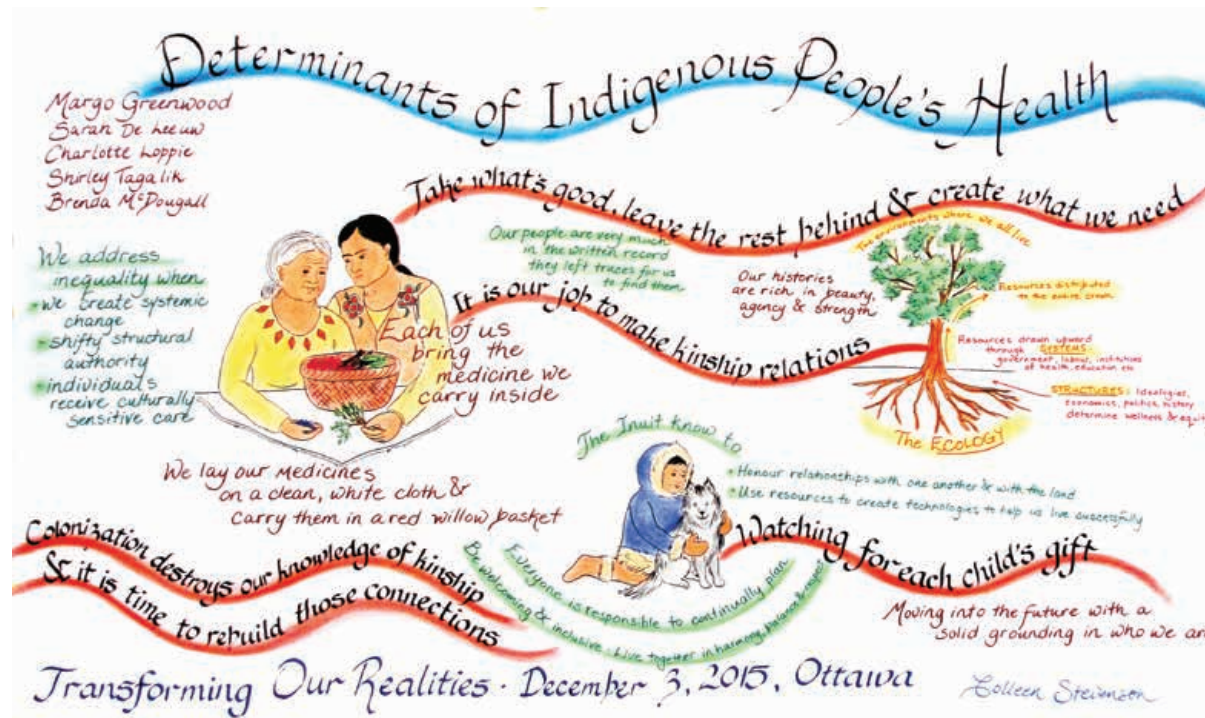 Determinants of Indigenous People's Health
Margo Greenwood
Saran De Leeuw
Charlotte Loppie
Shirley Tagalik
Brenda McDougall
Take what's good, leave the rest behind & create what we need
We address
inequality when
• we create systemic
change
• shifty structural
authority
• individuals
receive culturally
sensitive care
Our people are very much
in the written record
they left traces for us
to find them
Each of us
bring the
medicine we
carry inside
It is our job to make kinship relations
Our histories
are rich in beauty,
agency & strength
The environments where we all live
Resources distributed
to the entire crown
Resources drawn upward
through SYSTEMS:
government, labour, institutions
of health, education etc
STRUCTURES: Ideologies,
economics, politics, history
determine wellness & equi
The ECOLOGY
We lay our medicines
on a clean, white cloth &
carry them in a red willow basket
The Inuit know to
• Honour relationships with one another & with the land
• Use resources to create technologies to help us live successfully
Everyone is responsible to continually plan
Be welcoming & inclusive · Live together in harmony, balance & respect
Colonization destroys our knowledge of kinship
& it is time to rebuild those connections
Watching for each child's gift
Moving into the future with a
solid grounding in who we ar
Transforming Our Realities · December 3, 2015, Ottawa
Colleen Stevenson